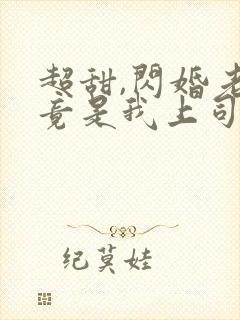 超甜,閃婚老
竟是我上司
纪莫娃